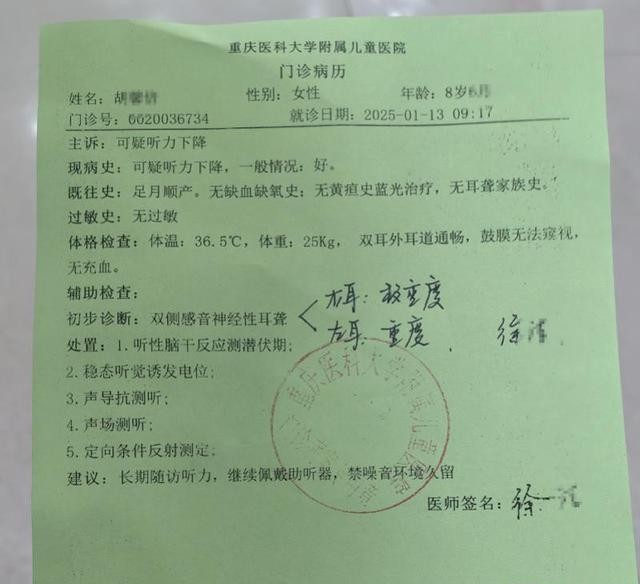 重庆医科大学附属儿童医院
门诊病历
姓名：胡 性别：女性 年龄：8岁
门诊号：6620036734 就诊日期：2025-01-13 09:17
主诉：可疑听力下降
现病史：可疑听力下降，一般情况：好。
既往史：足月顺产。无缺血缺氧史；无黄疸史蓝光治疗，无耳聋家族史。
过敏史：无过敏
体格检查：体温：36.5℃，体重：25Kg， 双耳外耳道通畅，鼓膜无法窥视，
无充血。
辅助检查：
初步诊断：双侧感音神经性耳聋
右耳：极重度
左耳：重度
徐
处置：1.听性脑干反应测潜伏期；
2.稳态听觉诱发电位；
3.声导抗测听；
4.声场测听；
5.定向条件反射测定；
建议：长期随访听力，继续佩戴助听器，禁噪音环境久留
医师签名：徐
重庆医科大学附属儿童医院